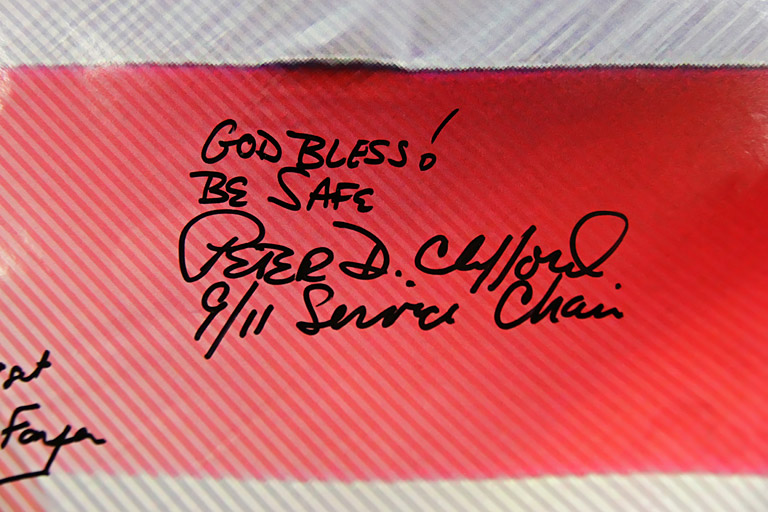 GOD BLESS!
BE SAFE
PETER D. Clifford
9/11 Service Chair